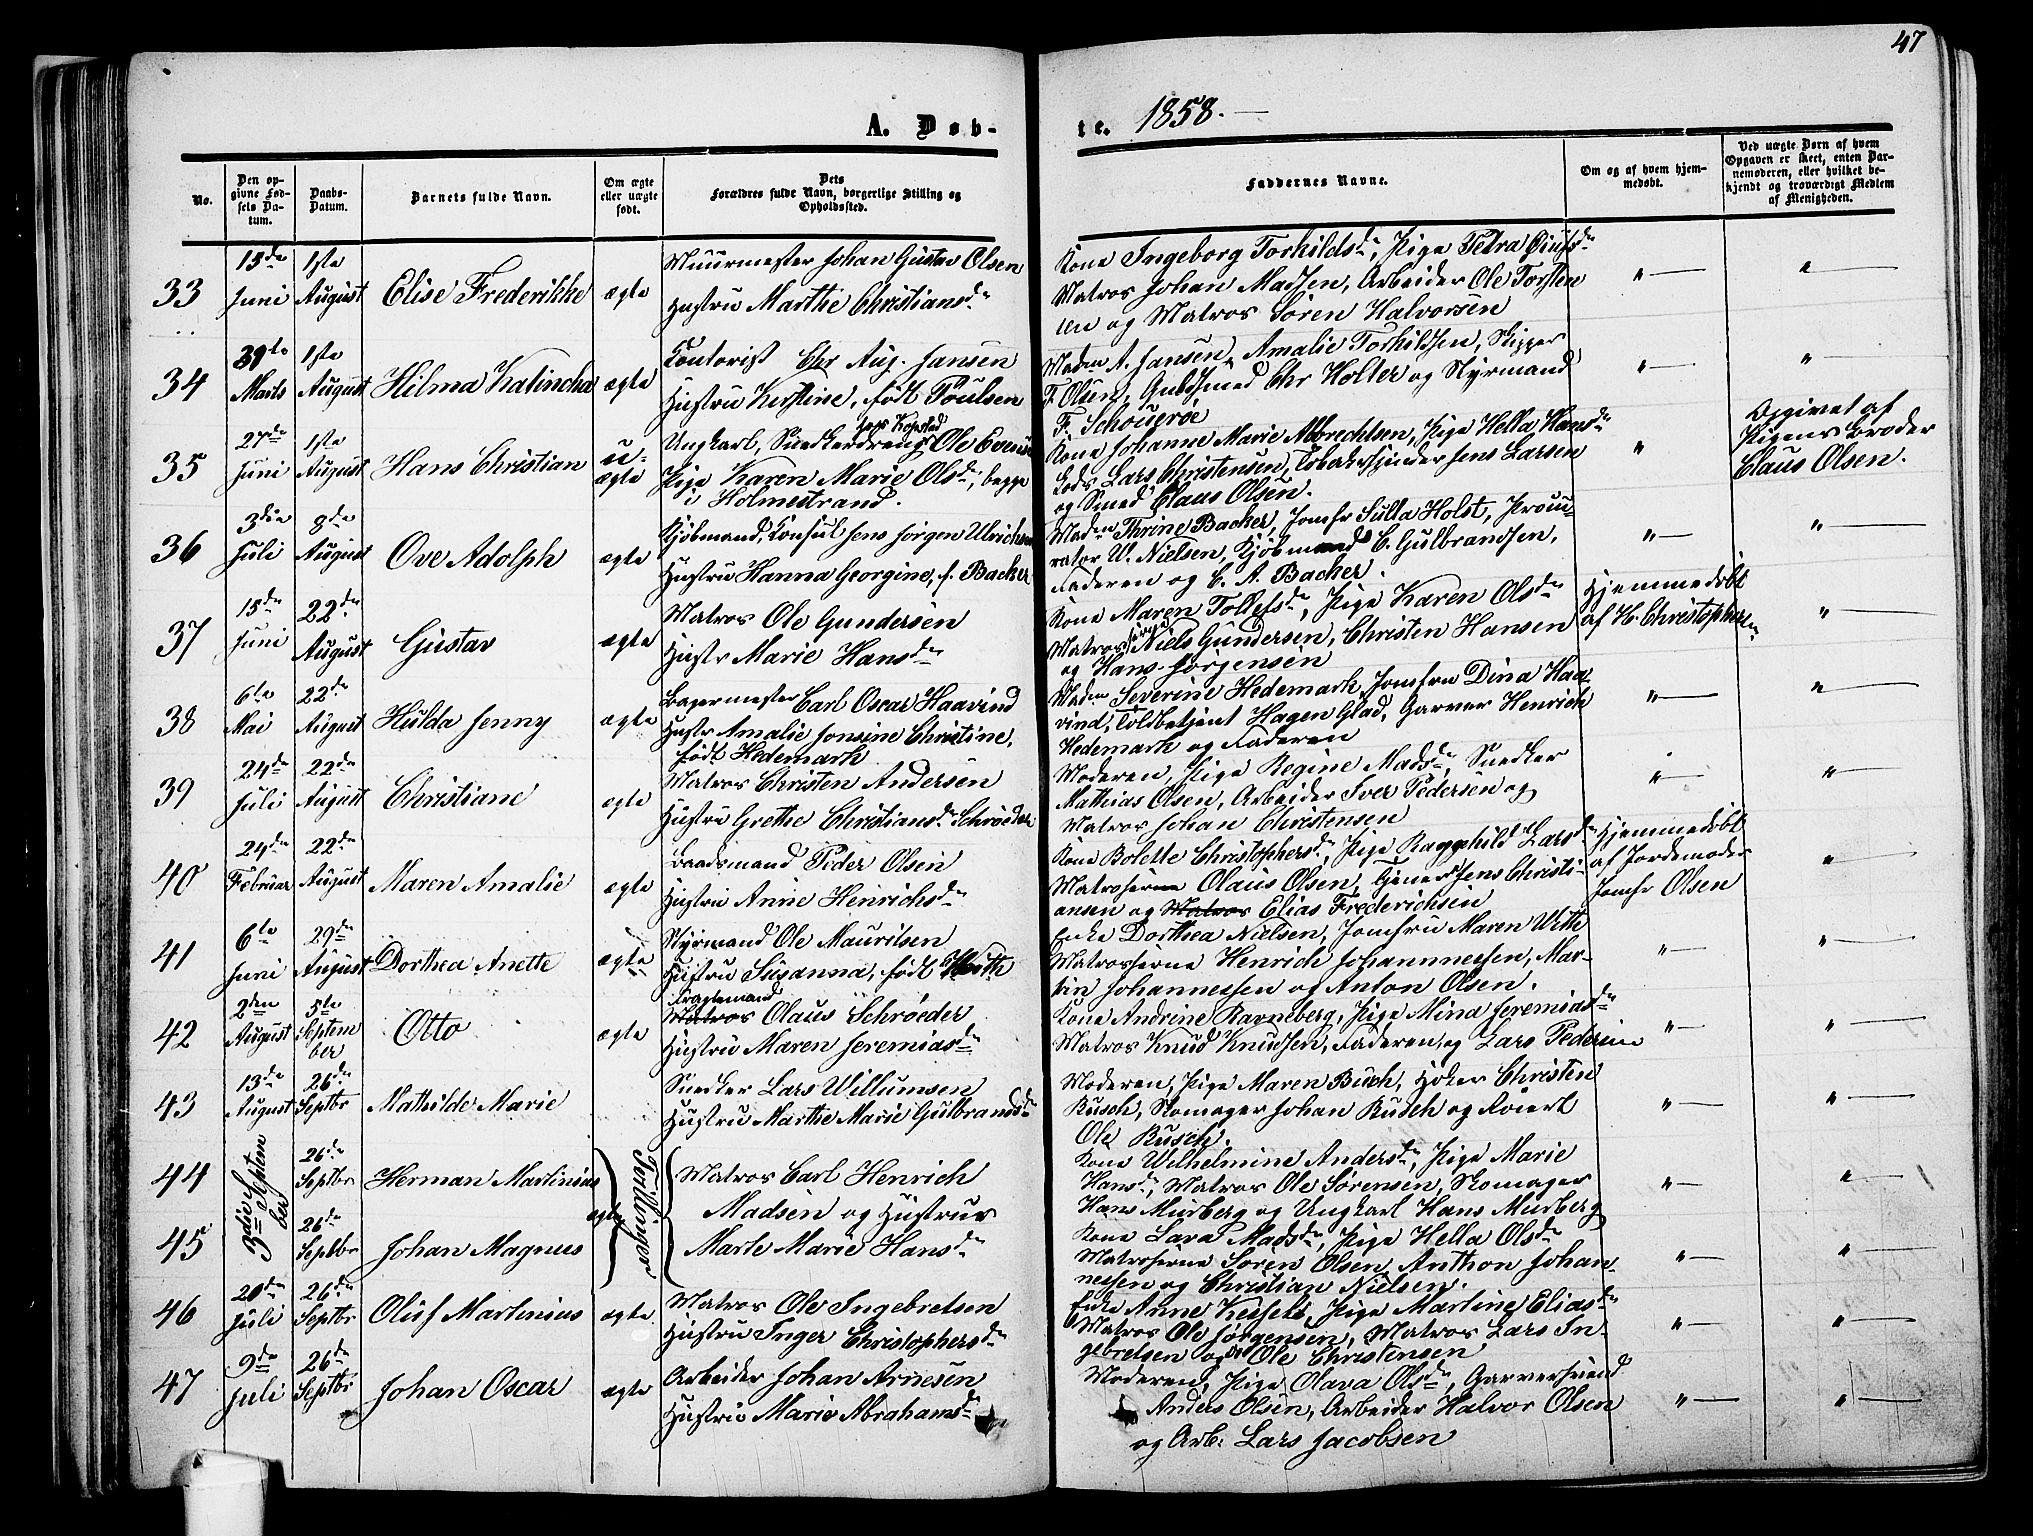 47
A. Døb-
te. 1858.
No.
Den op-
givne Fød-
sels Da-
tum.
Daabs-
Datum.
Barnets fulde Navn.
Om ægte
eller uægte
født.
Dets
Forældres fulde Navn, borgerlige Stilling og
Opholdssted.
Faddernes Navne.
Om og af hvem hjem-
medøbt.
Ved uægte Børn af hvem
Opgaven er skeet, enten Bar-
nemoderen, eller hvilket be-
kjendt og troværdigt Medlem
af Menigheden.
33
15de
Juni
1ste
August
Elise Frederikke
ægte
Muurmester Johan Gustav Olsen
Hustru Marthe Christiansdn
Kone Ingeborg Torhildsdn, Pige Petra
Matros Johan Madsen, Arbeider Ole Torsten
sen og Matros Sören Halvorsen
"
"
34
Marts
1ste
August
Hilma Katincka
ægte
Kontorist Chr Aug. Jansen
Hustru Kirstine, födt Poulsen
Madm A. Jansen, Amalie Torkildsen, Skipper
F Olsen, Guldsmed Chr Holter og Styrmand
F. Schouerøe
"
"
35
27de
Juni
1ste
August
Hans Christian
u-
ægte
Ungkarl, Snedkerdreng Ole Evensen
Pige Karen Marie Olsdn, begge
i Holmestrand.
Kone Johanne Marie Albrechtsen, Pige Hella Hansdn
Lods Lars Christensen, Tobaksspinder Jens Larsen
og Smed Claus Olsen.
"
Opgivet af
Pigens Broder
Claus Olsen.
36
3die
Juli
8de
August
Ove Adolph
ægte
Kjöbmand, Konsul Jens Jörgen Ulrichsen
Hustru Hanna Georgine, f. Backer
Madm Thrine Backer, Jomfr Sulla Holst, Procu-
rator W. Nielsen, Kjöbmand C. Gulbrandsen,
Faderen og C. A. Backer.
"
"
37
15de
Juni
22de
August
Gustav
ægte
Matros Ole Gundersen
Hustr Marie Hansdn
Kone Maren Tollefsdn, Pige Karen Olsdn
Matroserne Niels Gundersen, Christen Hansen
og Hans Jörgensen
Hjemmedöbt
af H. Christophersen
"
38
6te
Mai
22de
August
Hulda Jenny
ægte
Bagermester Carl Oscar Haavind
Hustr Amalie Jonsine Christine,
født Hedemark
Madm Severine Hedemark, Jomfru Dina Haa-
vind, Toldbetjent Hagen Glad, Garver Henrich
Hedemark og Faderen
"
"
39
24de
Juli
22de
August
Christiane
ægte
Matros Christen Andersen
Hustru Grethe Christiansdn Schröeder
Moderen, Pige Regine Madsdn, Snedker
Mathias Olsen, Arbeider Iver Pedersen og
Matros Johan Christensen
"
"
40
24de
Februar
22de
August
Maren Amalie
ægte
Baadsmand Peder Olsen
Hustru Anne Henrichsdn
Kone Bolette Christophersdn, Pige Ragnhild Larsdn
Matroserne Olaus Olsen, Tjener Jens Christi-
ansen og Matros Elias Frederichsen
Hjemmedöbt
af Jordemoder
Jomfr Olsen
"
41
6te
Juni
29de
August
Dorthea Anette
ægte
Styrmand Ole Mauritsen
Hustru Susanna, født With
Enke Dorthea Nielsen, Jomfru Maren With
Matroserne Henrich Johannnessen, Mar-
tin Johannessen og Anton Olsen.
"
"
42
2den
August
5te
Septem
ber
Otto
ægte
Fragtemand
Matros Olaus Schröeder
Hustru Maren Jeremiasdn
Kone Andrine Ravneberg, Pige Mina Jeremiasdn
Matros Knud Knudsen, Faderen, og Lars Pedersen
"
"
43
13de
August
26de
Septbr
Mathilde Marie
Snedker Lars Willumsen
Hustru Marthe Marie Gulbrandsdn
Moderen, Pige Maren Busch, Höker Christen
Busch, Skomager Johan Busch og Foiert
Ole Busch.
"
"
44
3die Septem
ber
26de
Septbr
Herman Martinius
ægte
Tvillinger
Matros Carl Henrich
Madsen og Hustrue
Marte Marie Hansdn
Kone Wilhelmine Andersdn, Pige Marie
Hansdn, Matros Ole Sörensen, Skomager
Hans Murberg og Ungkarl Hans Murberg
"
"
45
26de
Septbr
Johan Magnus
Kone Lava Madsdn, Pige Hella Olsdn
Matroserne Sören Olsen, Anthon Johan-
nessen og Christian Nielsen.
"
"
46
20de
Juli
26de
Septbr
Oluf Martinius
ægte
Matros Ole Ingebretsen
Hustru Inger Christophersdn
Enke Anne Kessels, Pige Martine Eliasdn
Matros Ole Jørgensen, Matros Lars In-
gebretsen og Ole Christensen
"
"
47
9de
Juli
26de
Septbr
Johan Oscar
ægte
Arbeider Johan Arnesen
Hustru Marie Abrahamsdn
Moderen, Pige Olava Olsdn, Garversvend
Anders Olsen, Arbeider Halvor Olsen
og Arb. Lars Jacobsen
"
"